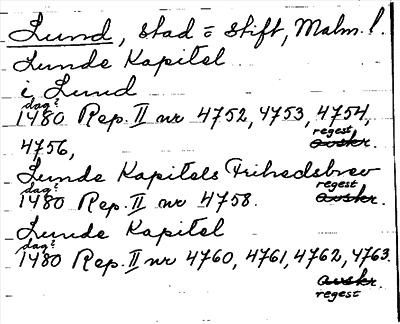 Lund, stad o stift, Malm. l.
Lunde Kapitel
i Lund
dag?
1480 Rep. II nr 4752, 4753, 4754,
regest
4756, avskr.
Lunde Kapitels Frihedsbrev
dag? regest
1480 Rep. II nr 4758. avskr.
Lunde Kapitel
dag?
1480 Rep. II nr 4760, 4761, 4762, 4763.
avskr.
regest